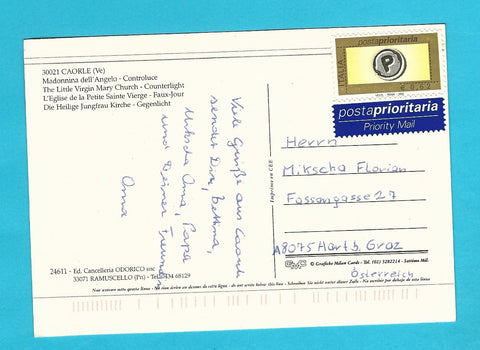 30021 CAORLE (Ve)
Madonnina dell'Angelo - Controluce
The Little Virgin Mary Church - Counterlight
L'Eglise de la Petite Sainte Vierge - Faux-Jour
Die Heilige Jungfrau Kirche - Gegenlicht
Viele Grüße aus Caorle
sendet Dir,
Oma, Papa
und Deiner Freundin
Oma
24611 - Ed. Cancelleria ODORICO snc
33071 RAMUSCELLO (Pn) - Tel. 0434 68129
Imprimé en CEE
postaprioritaria
ITALIA
P
€ 0,62
postaprioritaria
Priority Mail
Herrn
Mikscha Florian
Fassangasse 27
A 8075 Hart b. Graz
Österreich
© Grafiche Milan Cards - Tel. (02) 5282214 - Settimo Mil.
Non scrivere sotto questa linea - No escribir en dessous de cette ligne - do not write below this line - Schreiben Sie nicht unter dieser Zeile